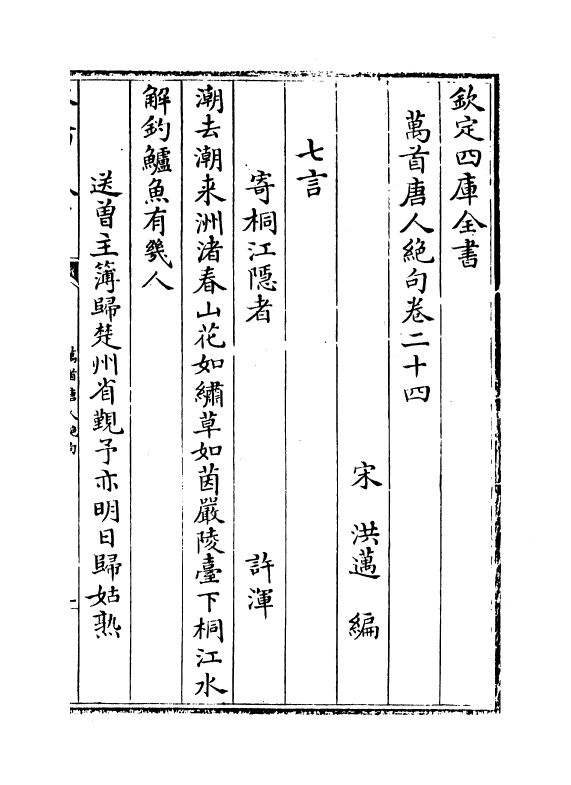 欽定四庫全書
萬首唐人絕句卷二十四
宋 洪邁 編
七言
寄桐江隱者 許渾
潮去潮来洲渚春山花如繡草如茵嚴陵臺下桐江水
解釣鱸魚有幾人
送曾主簿歸楚州省觀予亦明日歸姑熟
萬首唐人絶句